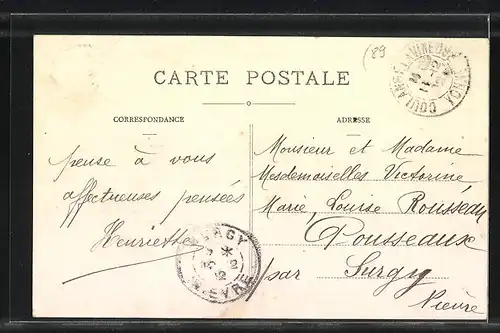 (89
CARTE POSTALE
CORRESPONDANCE
ADRESSE
pense à vous
affectueuses pensées
Henriette
Monsieur et Madame
Mesdemoiselles Victorine
Marie Louise Rousseau
Pousseaux
par Surgy
Nièvre
COULANGES-LA-VINEUSE YONNE
SURGY
NIEVRE